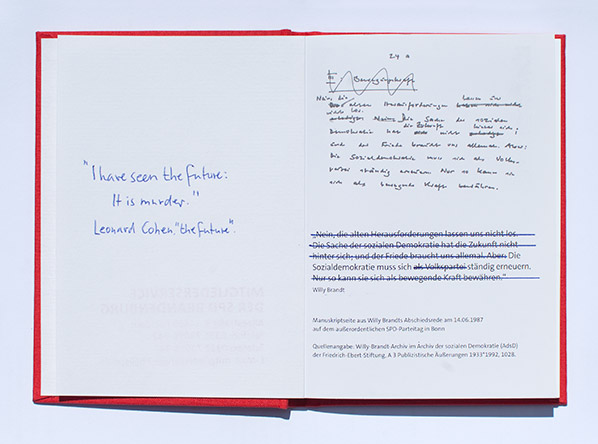 "I have seen the future:
It is murder."
Leonard Cohen "the future".
24 a
Bewegungskraft
Nein, die
alten Herausforderungen lassen uns
nicht los.
Die Sache der sozialen
die Zukunft hinter sich;
Demokratie hat nicht
und der Friede braucht uns allemal. Aber:
Die Sozialdemokratie muss sich als Volks-
partei ständig erneuern. Nur so kann sie
sich als bewegende Kraft bewähren.
„Nein, die alten Herausforderungen lassen uns nicht los.
Die Sache der sozialen Demokratie hat die Zukunft nicht
hinter sich; und der Friede braucht uns allemal. Aber: Die
Sozialdemokratie muss sich als Volkspartei ständig erneuern.
Nur so kann sie sich als bewegende Kraft bewähren."
Willy Brandt
Manuskriptseite aus Willy Brandts Abschiedsrede am 14.06.1987
auf dem außerordentlichen SPD-Parteitag in Bonn
Quellenangabe: Willy-Brandt-Archiv im Archiv der sozialen Demokratie (AdsD)
der Friedrich-Ebert-Stiftung, A 3 Publizistische Äußerungen 1933–1992, 1028.